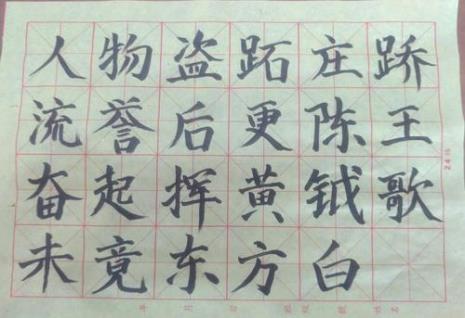 人物盗跖庄蹻
流誉后更陈王
奋起挥黄钺歌
未竟东方白